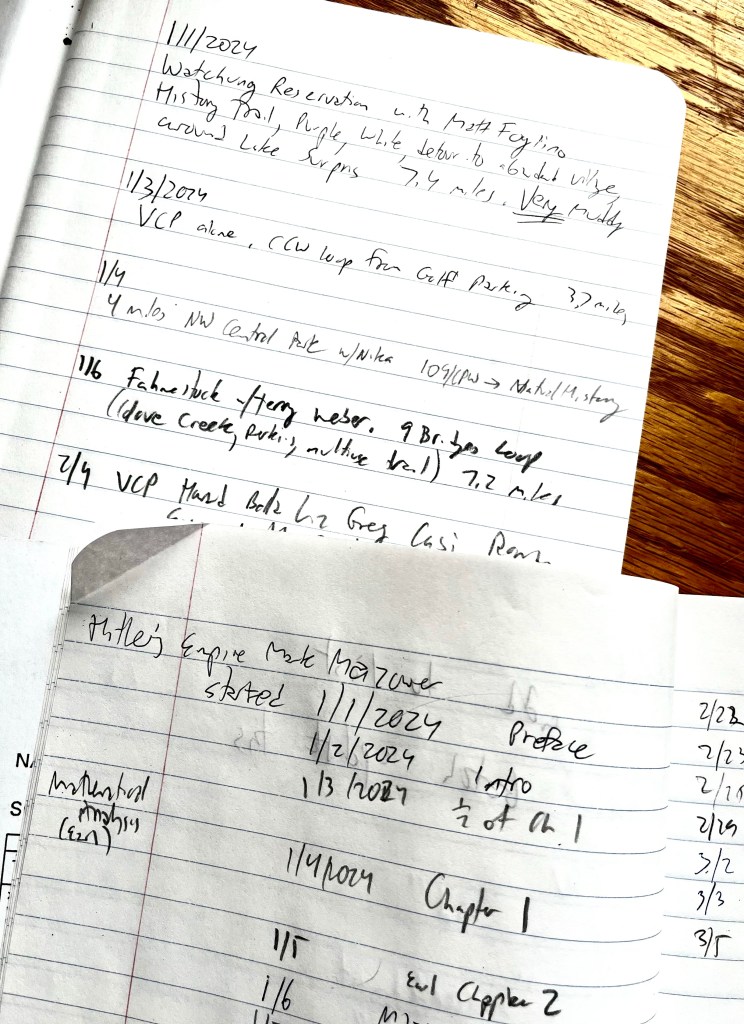 1/1/2024
Watchung Reservation with Matt
History Trail, Purple, White, detour to village,
around Lake Surpris 7.4 miles. Very Muddy
1/3/2024
VCP alone, CCW loop from Golf Parking 3.7 miles
1/4
4 miles NW Central Park w/Nika 109/CPW → Natural History
1/6 Fahnestock w/ Weber. 9 Bridges Loop
(Clove Creek, Perkins, multiuse trail) 7.2 miles
2/4 VCP Liz Greg
Hitler's Empire Mark Mazower
started 1/1/2024 Preface
1/2/2024 Intro
1/3/2024 1/2 of Ch. 1
Mathematical
Analysis
1/4/2024 Chapter 1
1/5 Chapter 2
1/6
2/29
3/2
3/3
3/5